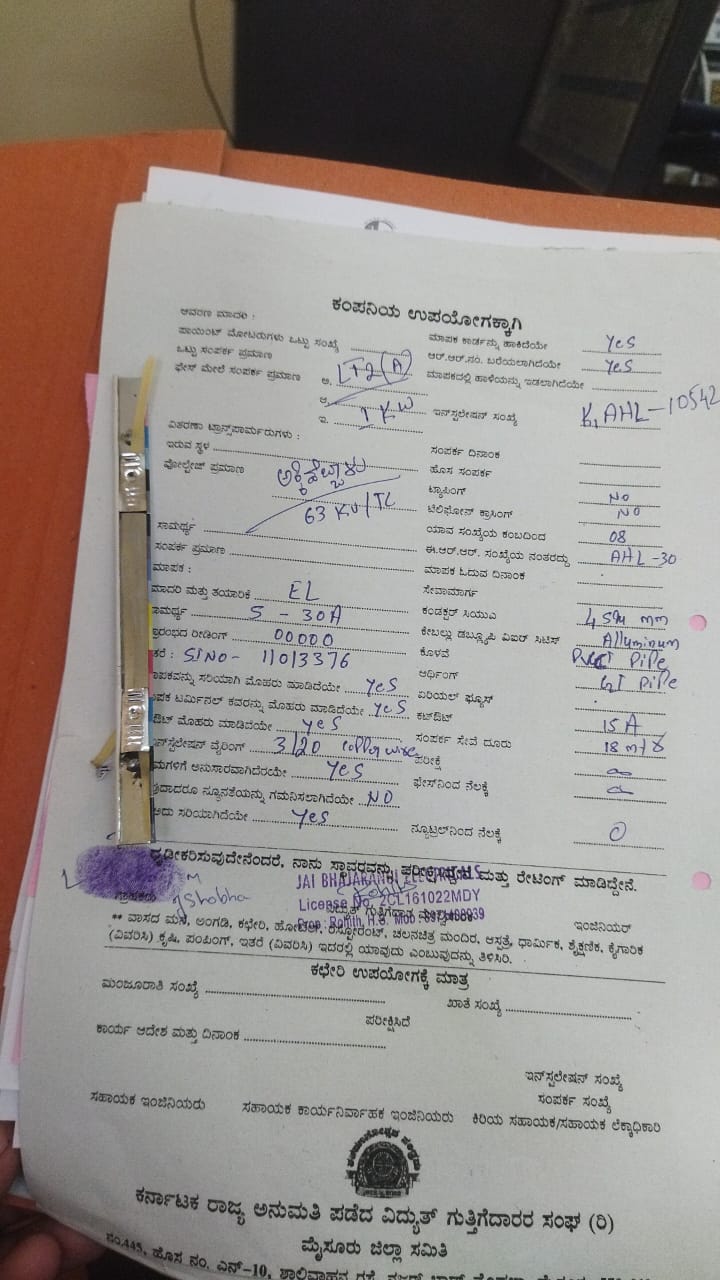 ಕಂಪನಿಯ ಉಪಯೋಗಕ್ಕಾಗಿ
ಆವರಣ ಮಾದರಿ :
ಮಾಪಕ ಕಾರ್ಡನ್ನು ಹಾಕಿದೆಯೇ Yes
ಪಾಯಿಂಟ್ ಮೋಟರುಗಳು ಒಟ್ಟು ಸಂಖ್ಯೆ
ಆರ್.ಆರ್.ನಂ. ಬರೆಯಲಾಗಿದೆಯೇ Yes
ಒಟ್ಟು ಸಂಪರ್ಕ ಪ್ರಮಾಣ
ಮಾಪಕದಲ್ಲಿ ಹಾಳೆಯನ್ನು ಇಡಲಾಗಿದೆಯೇ
ಫೇಸ್ ಮೇಲೆ ಸಂಪರ್ಕ ಪ್ರಮಾಣ ಅ. LT2(A)
ಆ.
ಇ. 1 KW ಇನ್‌ಸ್ಟಲೇಷನ್ ಸಂಖ್ಯೆ K1AHL-10542
ವಿತರಣಾ ಟ್ರಾನ್ಸ್‌ಪಾರ್ಮರುಗಳು :
ಸಂಪರ್ಕ ದಿನಾಂಕ
ಇರುವ ಸ್ಥಳ ಅಕ್ಕಿಹೆಬ್ಬಾಳು
ಹೊಸ ಸಂಪರ್ಕ
ವೋಲ್ಟೇಜ್ ಪ್ರಮಾಣ 63 KV/TC
ಟ್ಯಾಪಿಂಗ್ NO
ಟೆಲಿಫೋನ್ ಕ್ರಾಸಿಂಗ್ NO
ಸಾಮರ್ಥ್ಯ
ಯಾವ ಸಂಖ್ಯೆಯ ಕಂಬದಿಂದ 08
ಸಂಪರ್ಕ ಪ್ರಮಾಣ
ಈ.ಆರ್.ಆರ್. ಸಂಖ್ಯೆಯ ನಂತರದ್ದು AHL-30
ಮಾಪಕ :
ಮಾಪಕ ಓದುವ ದಿನಾಂಕ
ಮಾದರಿ ಮತ್ತು ತಯಾರಿಕೆ EL
ಸೇವಾಮಾರ್ಗ
ಸಾಮರ್ಥ್ಯ 5 - 30A
ಕಂಡಕ್ಟರ್ ಸಿಯುಎ 4 sqr mm
ರಂಭದ ರೀಡಿಂಗ್ 00000
ಕೇಬಲ್ಲು ಡಬ್ಲ್ಯೂಪಿ ಎಐಆರ್ ಸಿಟಿಸ್ Alluminum
ಕರೆ : SlNo- 11013376
ಕೊಳವೆ Pipe
ಾಪಕವನ್ನು ಸರಿಯಾಗಿ ಮೊಹರು ಮಾಡಿದೆಯೇ Yes
ಆರ್ಥಿಂಗ್ GI Pipe
ಪಕ ಟರ್ಮಿನಲ್ ಕವರನ್ನು ಮೊಹರು ಮಾಡಿದೆಯೇ Yes
ಏರಿಯಲ್ ಫ್ಯೂಸ್
ಔಟ್ ಮೊಹರು ಮಾಡಿದೆಯೇ Yes
ಕಟ್‌ಔಟ್ 15 A
ನ್‌ಸ್ಟಲೇಷನ್ ವೈರಿಂಗ್ 3/20 copper wire
ಸಂಪರ್ಕ ಸೇವೆ ದೂರು
ಪರೀಕ್ಷೆ
ಮಗಳಿಗೆ ಅನುಸಾರವಾಗಿದೆರೆಯೇ Yes
ಫೇಸ್‌ನಿಂದ ನೆಲಕ್ಕೆ
ದಾದರೂ ನ್ಯೂನತೆಯನ್ನು ಗಮನಿಸಲಾಗಿದೆಯೇ NO
ಅದು ಸರಿಯಾಗಿದೆಯೇ Yes
ನ್ಯೂಟ್ರಲ್‌ನಿಂದ ನೆಲಕ್ಕೆ 0
ದೃಢೀಕರಿಸುವುದೇನೆಂದರೆ, ನಾನು ಸ್ಥಾವರವನ್ನು ಪರೀಕ್ಷಿಸಿದ್ದೇನೆ ಮತ್ತು ರೇಟಿಂಗ್ ಮಾಡಿದ್ದೇನೆ.
JAI BHAJARANGI ELECTRICALS
License No. 2CL161022MDY
Shobha
ಗ್ರಾಹಕರು
ವಿದ್ಯುತ್ ಗುತ್ತಿಗೆದಾರ
ಇಂಜಿನಿಯರ್
Prop: Rohith, H.S.
** ವಾಸದ ಮನೆ, ಅಂಗಡಿ, ಕಛೇರಿ, ಹೋಟೆಲ್, ರೆಸ್ಟೋರೆಂಟ್, ಚಲನಚಿತ್ರ ಮಂದಿರ, ಆಸ್ಪತ್ರೆ, ಧಾರ್ಮಿಕ, ಶೈಕ್ಷಣಿಕ, ಕೈಗಾರಿಕ
(ವಿವರಿಸಿ) ಕೃಷಿ, ಪಂಪಿಂಗ್, ಇತರೆ (ವಿವರಿಸಿ) ಇದರಲ್ಲಿ ಯಾವುದು ಎಂಬುವುದನ್ನು ತಿಳಿಸಿರಿ.
ಕಛೇರಿ ಉಪಯೋಗಕ್ಕೆ ಮಾತ್ರ
ಮಂಜೂರಾತಿ ಸಂಖ್ಯೆ
ಖಾತೆ ಸಂಖ್ಯೆ
ಪರೀಕ್ಷಿಸಿದೆ
ಕಾರ್ಯ ಆದೇಶ ಮತ್ತು ದಿನಾಂಕ
ಇನ್‌ಸ್ಟಲೇಷನ್ ಸಂಖ್ಯೆ
ಸಂಪರ್ಕ ಸಂಖ್ಯೆ
ಸಹಾಯಕ ಇಂಜಿನಿಯರು ಸಹಾಯಕ ಕಾರ್ಯನಿರ್ವಾಹಕ ಇಂಜಿನಿಯರು ಕಿರಿಯ ಸಹಾಯಕ/ಸಹಾಯಕ ಲೆಕ್ಕಾಧಿಕಾರಿ
ಕರ್ನಾಟಕ ರಾಜ್ಯ ಅನುಮತಿ ಪಡೆದ ವಿದ್ಯುತ್ ಗುತ್ತಿಗೆದಾರರ ಸಂಘ (ರಿ)
ಮೈಸೂರು ಜಿಲ್ಲಾ ಸಮಿತಿ
ನಂ.445, ಹೊಸ ನಂ. ಎನ್-10, ಶಾಲಿವಾಹನ ರಸ್ತೆ,